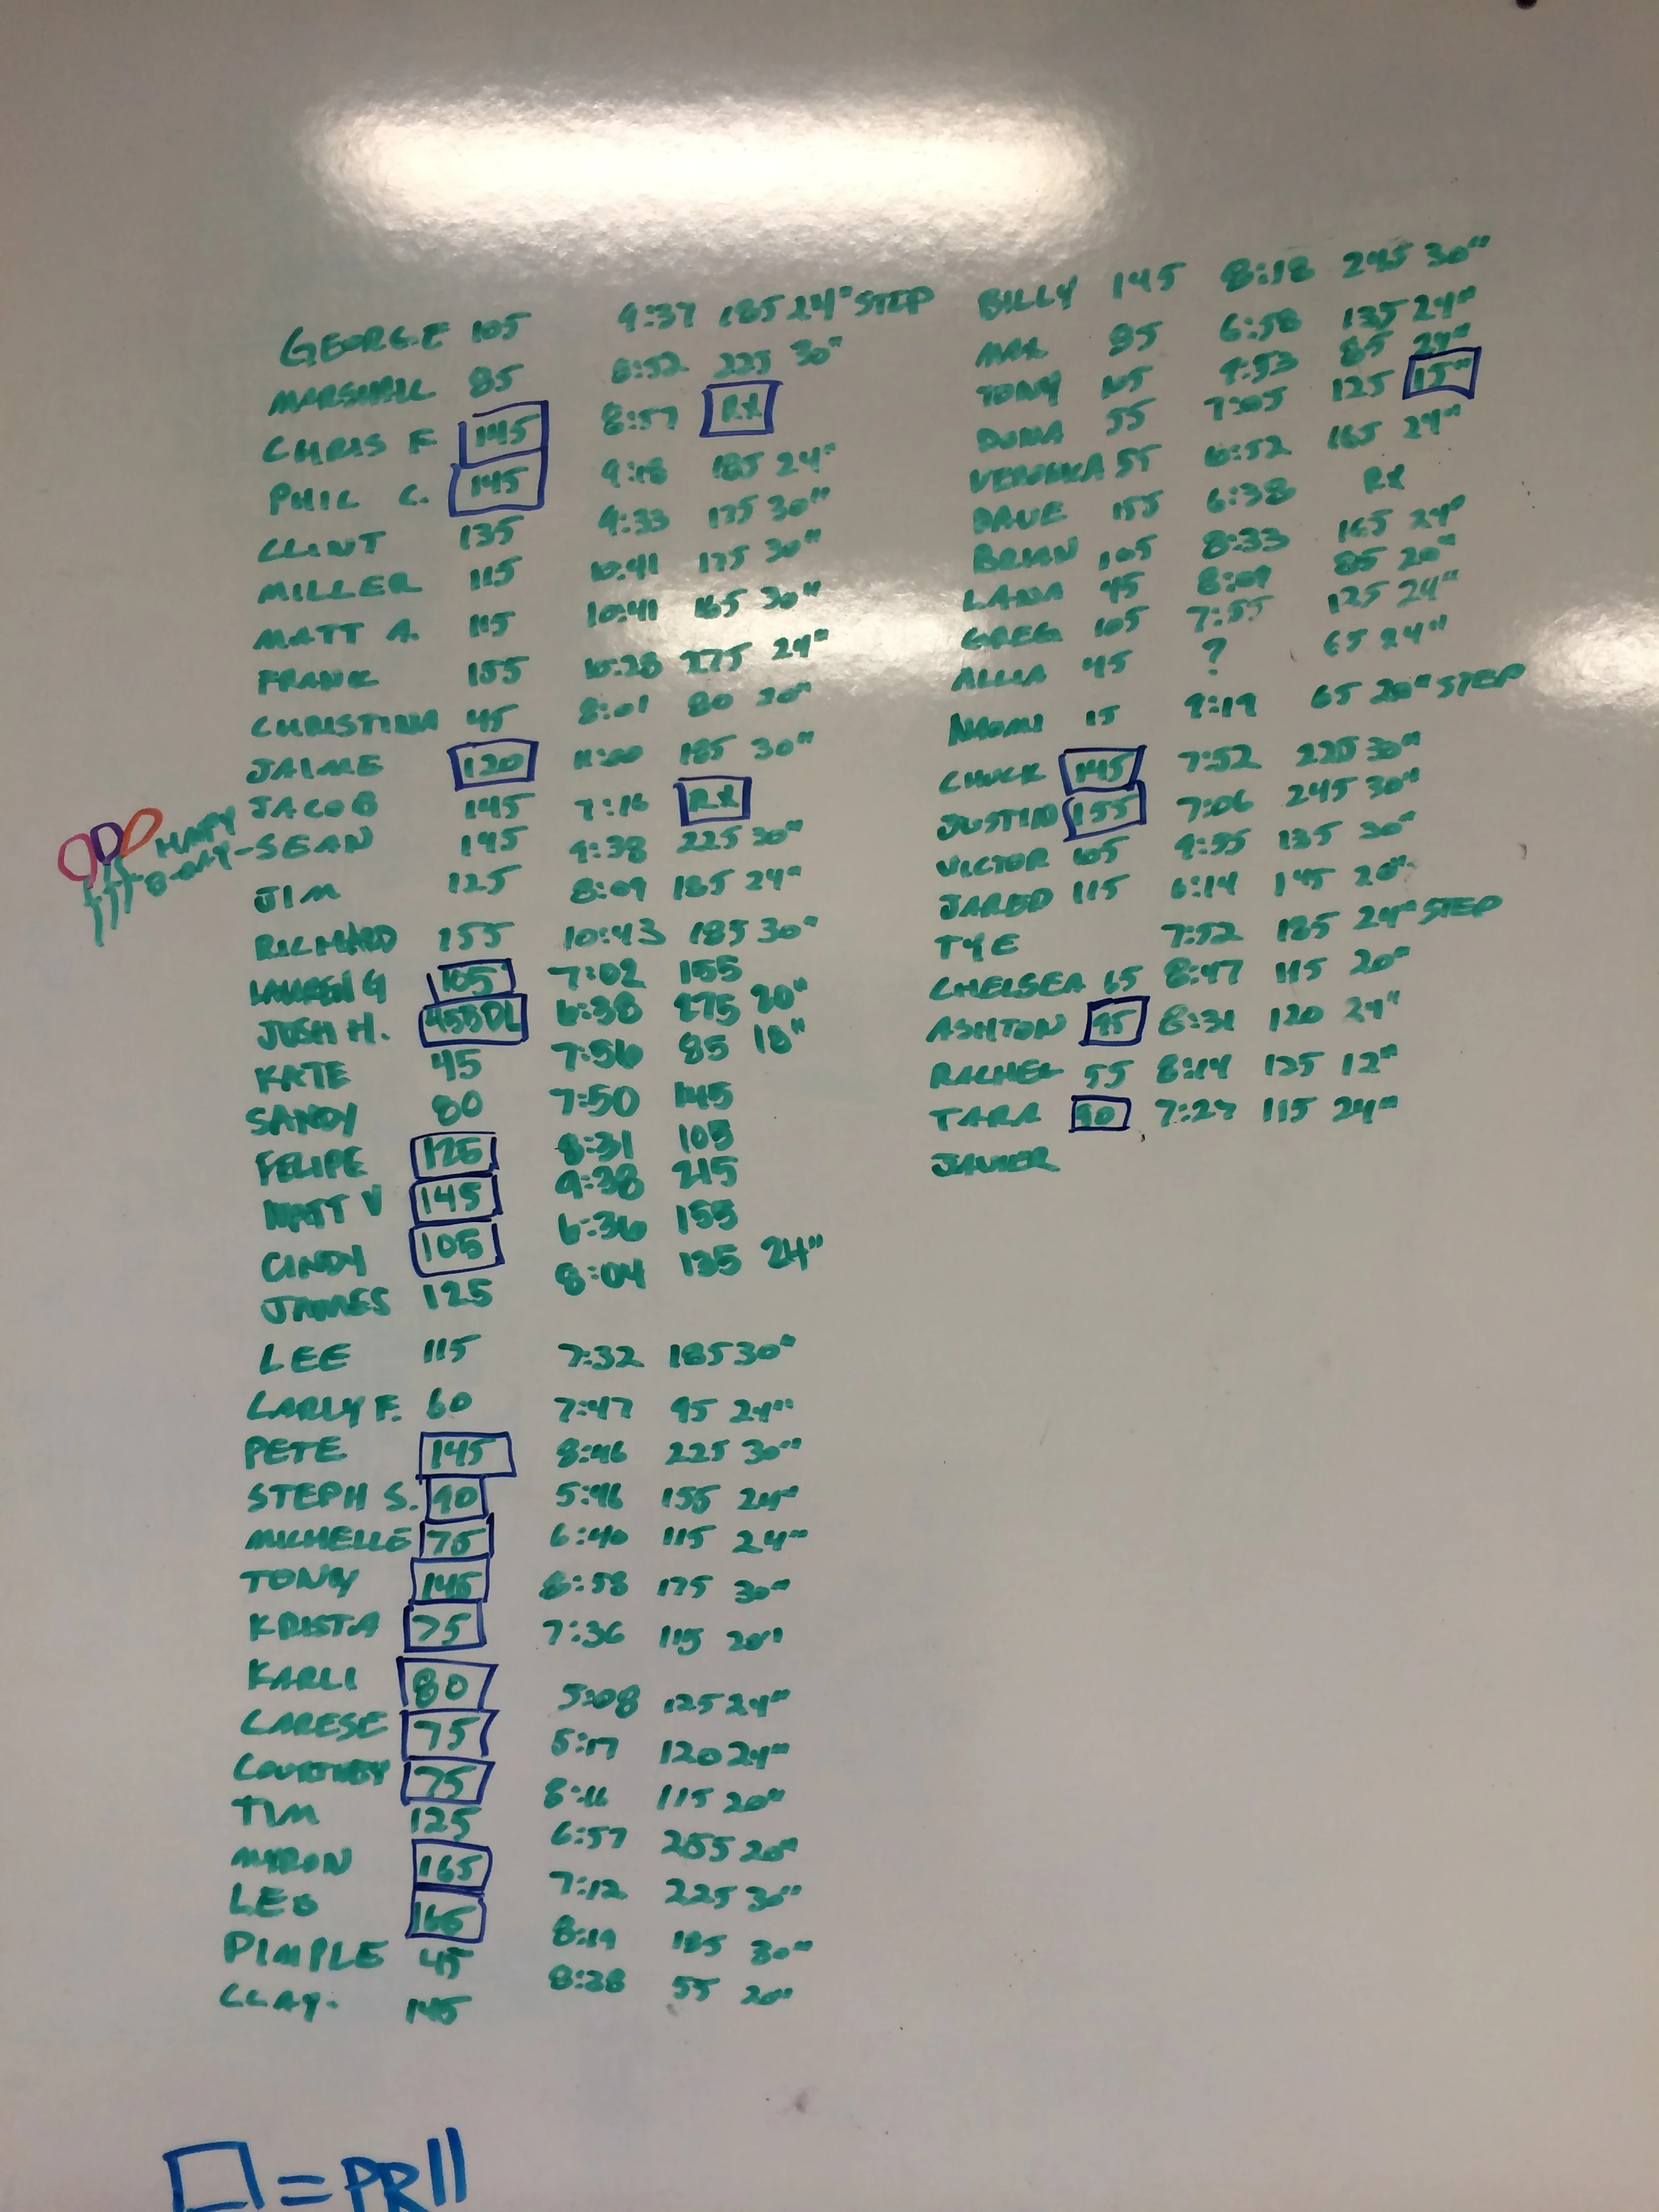 GEORGE 105 9:37 185 24" STEP
MARSHALL 85 8:52 225 30"
CHRIS F 145 8:57 RX
PHIL C. 145 9:18 185 24"
CLINT 135 9:33 175 30"
MILLER 115 10:41 175 30"
MATT A. 115 10:41 165 30"
FRANK 155 10:28 275 24"
CHRISTINA 45 8:01 80 20"
JAIME 120 11:00 185 30"
JACOB 145 7:16 RX
HAPY
B-DAY-SEAN 145 9:38 225 30"
JIM 125 8:09 185 24"
RICHARD 155 10:43 185 30"
LAUREN G 105 7:02 155
JOSH H. 455DL 6:38 275 20"
KATE 45 7:56 85 18"
SANDY 80 7:50 145
FELIPE 125 8:31 105
MATT V 145 9:38 215
CINDY 105 6:36 155
JAMES 125 8:04 135 24"
LEE 115 7:32 185 30"
CARLY F. 60 7:47 95 24"
PETE 145 8:46 225 30"
STEPH S. 90 5:46 155 24"
MICHELLE 75 6:40 115 24"
TONY 145 8:58 175 30"
KRISTA 75 7:36 115 20"
KARLI 80 5:08 125 24"
CARESE 75 5:17 120 24"
COURTNEY 75 8:16 115 20"
TIM 125 6:57 205 20"
MYRON 165 7:12 225 30"
LEO 165 8:19 185 30"
PIMPLE 45 8:38 55 20"
CLAY. 145
□ = PR!!
BILLY 145 8:18 245 30"
85 6:58 135 24"
TONY 105 9:53 85 24"
DONA 55 7:05 125 15"
VERONIKA 55 6:52 165 24"
DAVE 155 6:38 RX
BRIAN 105 8:33 165 24"
LANA 45 8:09 85 20"
GREG 105 7:55 125 24"
45 ? 65 24"
NAOMI 15 9:19 65 20" STEP
CHUCK 145 7:52 225 30"
JUSTIN 155 7:06 245 30"
VICTOR 105 9:55 135 30"
JARED 115 6:14 145 20"
TYE 7:52 185 24" STEP
CHELSEA 65 8:47 115 20"
ASHTON 95 8:31 120 24"
RACHEL 55 8:14 125 12"
TARA 90 7:27 115 24"
JAVIER